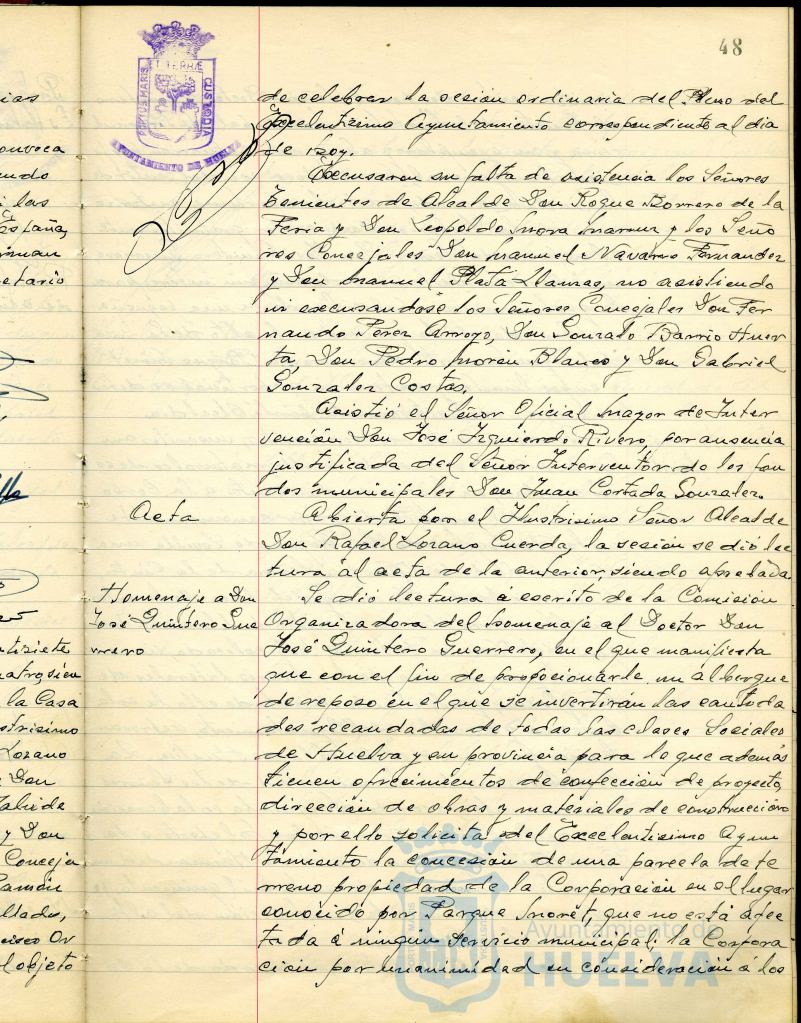 48
PORTUS MARIS ET TERRÆ CUSTODIA
AYUNTAMIENTO DE HUELVA
de celebrar la sesión ordinaria del Pleno del
Excelentísimo Ayuntamiento correspondiente al dia
de hoy.
Excusaron su falta de asistencia los Señores
Tenientes de Alcalde Don Roque Borrero de la
Feria y Don Leopoldo Mora y los Seño
res Concejales Don Manuel Navarro Fernandez
y Don Manuel Plata Llamas, no asistiendo
ni excusandose los Señores Concejales Don Fer
nando Perez Arroyo, Don Gonzalo Barrio Huer
ta, Don Pedro Morón Blanco y Don Gabriel
Gonzalez Costas.
Asistió el Señor Oficial Mayor de Inter
vención Don José Izquierdo Rivero, por ausencia
justificada del Señor Interventor de los fon
dos municipales Don Juan Cortada Gonzalez.
Acta
Abierta por el Ilustrisimo Señor Alcalde
Don Rafael Lozano Cuerda, la sesión se dió lec
tura al acta de la anterior, siendo aprobada.
Homenaje a Don
José Quintero Gue
rrero
Se dió lectura á escrito de la Comisión
Organizadora del homenaje al Doctor Don
José Quintero Guerrero, en el que manifiesta
que con el fin de proporcionarle un albergue
de reposo en el que se invertirán las cantida
des recaudadas de todas las clases Sociales
de Huelva y su provincia para lo que además
tienen ofrecimientos de confección de proyecto,
dirección de obras y materiales de construcción
y por ello solicita del Excelentisimo Ayun
tamiento la concesión de una parcela de te
rreno propiedad de la Corporación en el lugar
conocido por Parque Moret, que no está afec
tada á ningún servicio municipal; la Corpora
ción por unanimidad en consideración á los
ias
onvoca
ndo
i las
España,
etario
ntisiete
la Casa
strisimo
Lozano
Don
y Don
Conceja
Ramón
llado,
cisco Or
l objeto
Ayuntamiento de
HUELVA